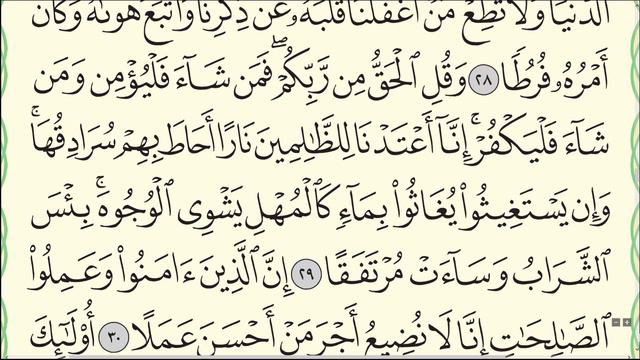 ٱلدُّنْيَا وَلَا تُطِعْ مَنْ أَغْفَلْنَا قَلْبَهُۥ عَن ذِكْرِنَا وَٱتَّبَعَ هَوَىٰهُ وَكَانَ
أَمْرُهُۥ فُرُطًا ٢٨ وَقُلِ ٱلْحَقُّ مِن رَّبِّكُمْ ۖ فَمَن شَآءَ فَلْيُؤْمِن وَمَن
شَآءَ فَلْيَكْفُرْ ۚ إِنَّآ أَعْتَدْنَا لِلظَّٰلِمِينَ نَارًا أَحَاطَ بِهِمْ سُرَادِقُهَا ۚ
وَإِن يَسْتَغِيثُوا۟ يُغَاثُوا۟ بِمَآءٍ كَٱلْمُهْلِ يَشْوِى ٱلْوُجُوهَ ۚ بِئْسَ
ٱلشَّرَابُ وَسَآءَتْ مُرْتَفَقًا ٢٩ إِنَّ ٱلَّذِينَ ءَامَنُوا۟ وَعَمِلُوا۟
ٱلصَّٰلِحَٰتِ إِنَّا لَا نُضِيعُ أَجْرَ مَنْ أَحْسَنَ عَمَلًا ٣٠ أُو۟لَٰٓئِكَ